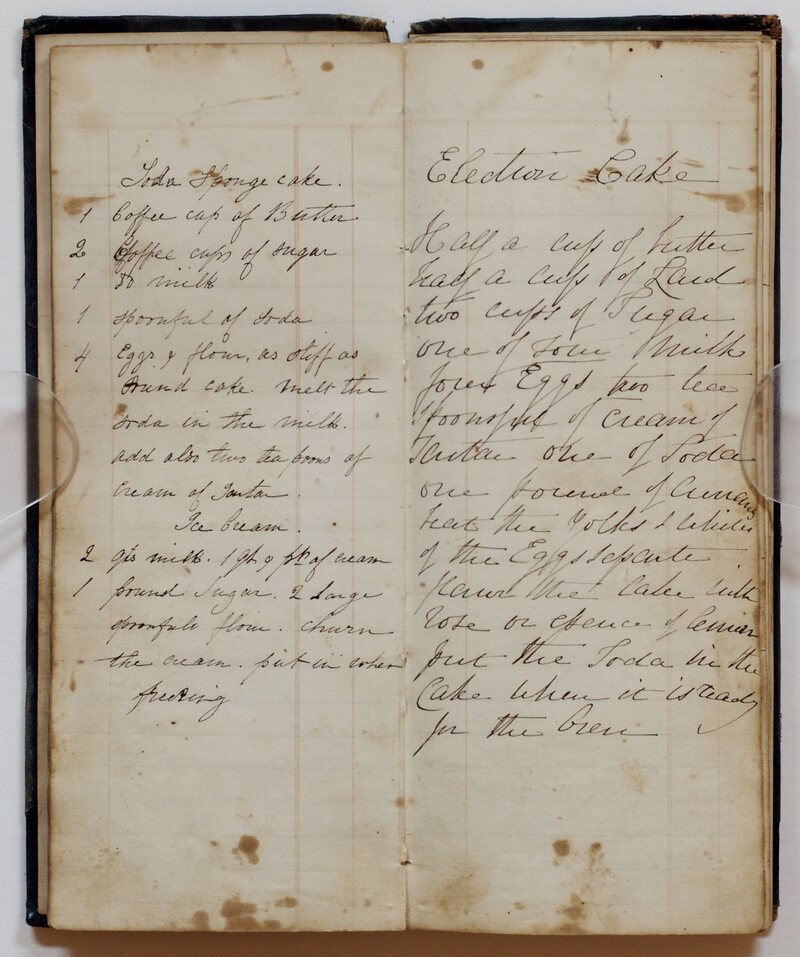 Soda Sponge cake.
1 Coffee cup of Butter
2 Coffee cups of sugar
1 Do milk
1 spoonful of soda
4 Eggs & flour, as stiff as
Pound cake. melt the
soda in the milk.
add also two teaspoons of
Cream of Tartar.
Ice Cream.
2 qts milk. 1 qt & pt of cream
1 pound Sugar. 2 Large
spoonfuls flour. churn
the cream. put in when
freezing
Election Cake
Half a cup of butter
half a cup of Lard
two cups of Sugar
one of sour Milk
four Eggs two tea
Spoonsful of Cream of
Tartar one of Soda
one pound of Currants
beat the Yolks & Whites
of the Eggs separte
flavor the Cake with
Rose or esence of lemon
put the Soda in the
Cake when it is ready
for the Oven